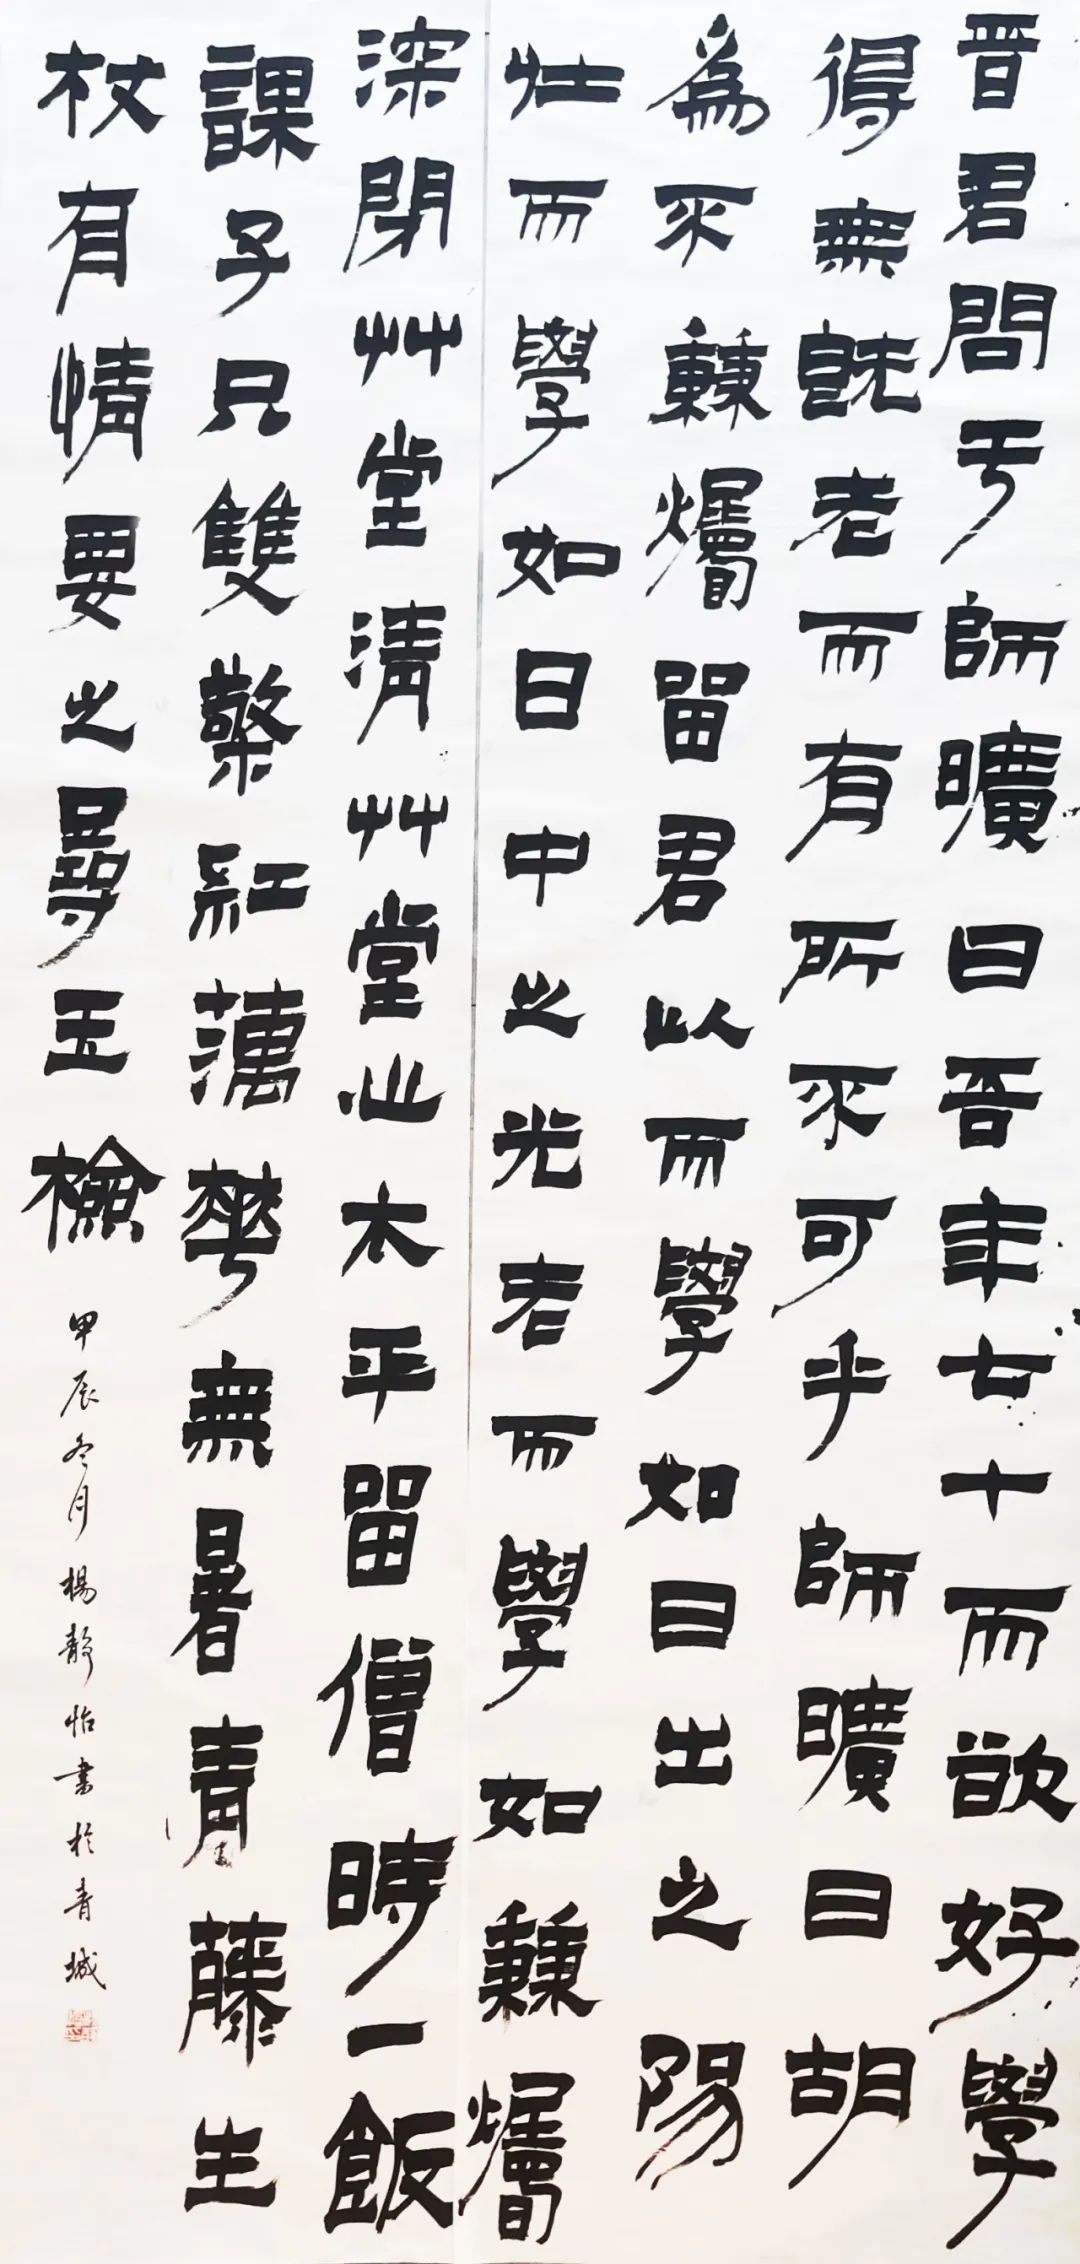 晋君問于師曠曰吾年七十而欲好學
得無既老而有所不可乎師曠曰胡
為不兼爥留君以而學如日出之陽
壮而學如日中之光老而學如兼爥
深閉艸堂清艸堂心太平留僧時一飯
課子只雙檠紅藕華無暑青藤生
杖有情要之尋玉檢
甲辰冬月楊静怡書於青城